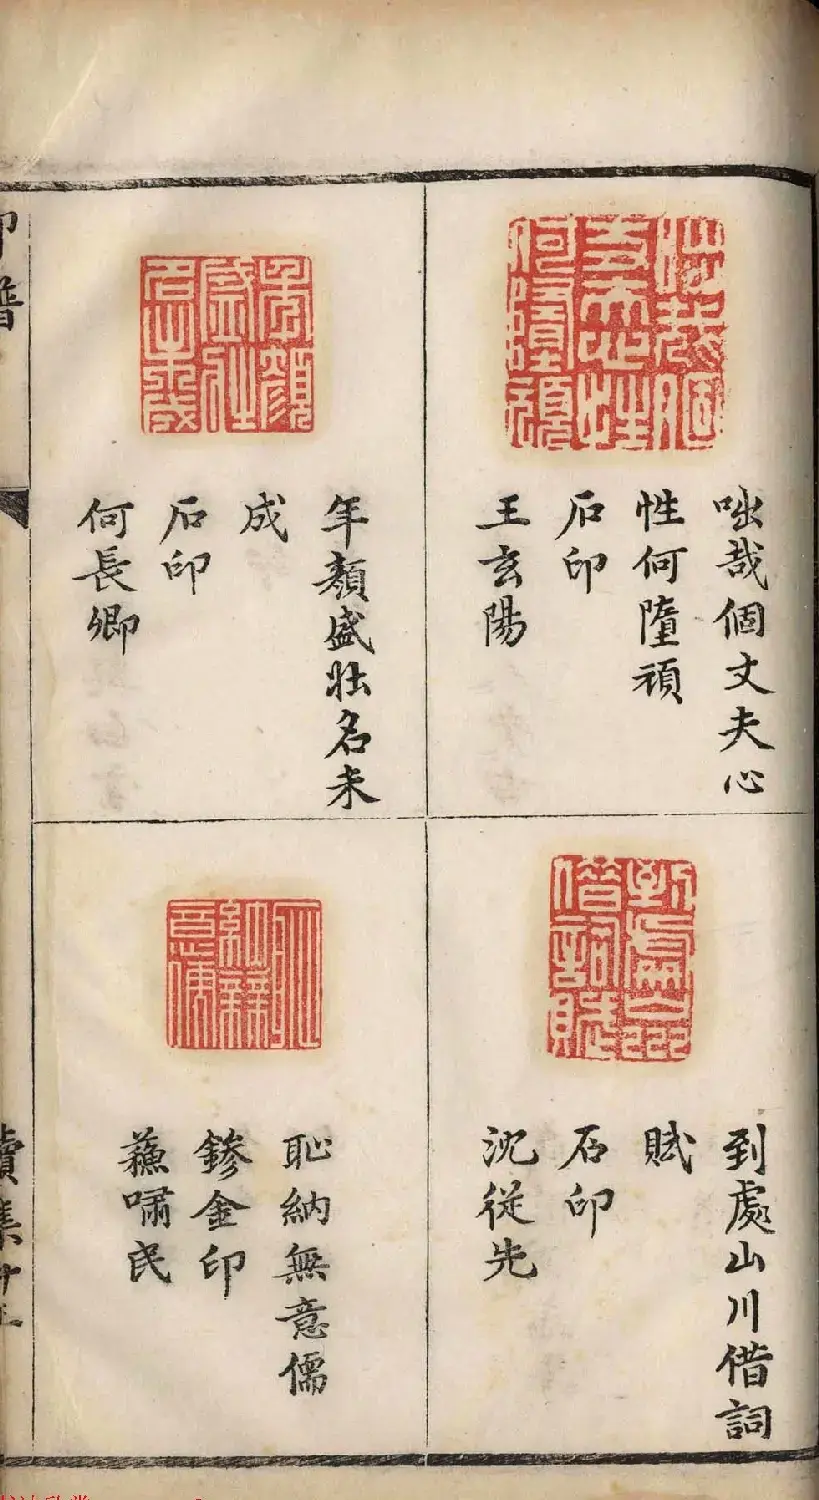 咄哉個丈夫心
性何墮頑
石印
王玄陽
年顏盛壯名未
成
石印
何長卿
到處山川借詞
賦
石印
沈從先
恥納無意儒
鏒金印
蘓嘯民
印譜
續集